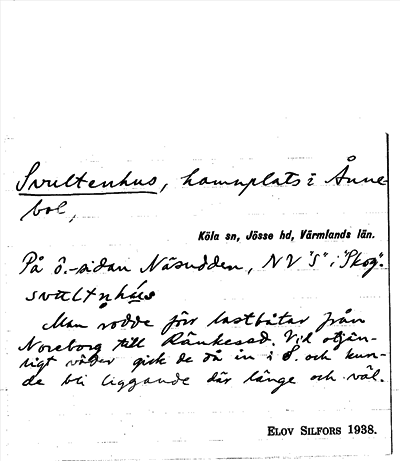 Svultenhus, hamnplats i Ånne-
bol,
Köla sn, Jösse hd, Värmlands län.
På ö.-sidan Näsudden, NV "S" i "Skog".
svultnhús
Man rodde förr lastbåtar från
Noreborg till Ränkesed. Vid otjän-
ligt väder gick de då in i S. och kun-
de bli liggande där länge och väl.
ELOV SILFORS 1938.